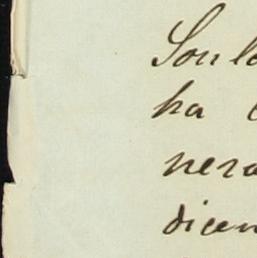 Son lo
ha
nera
dicen